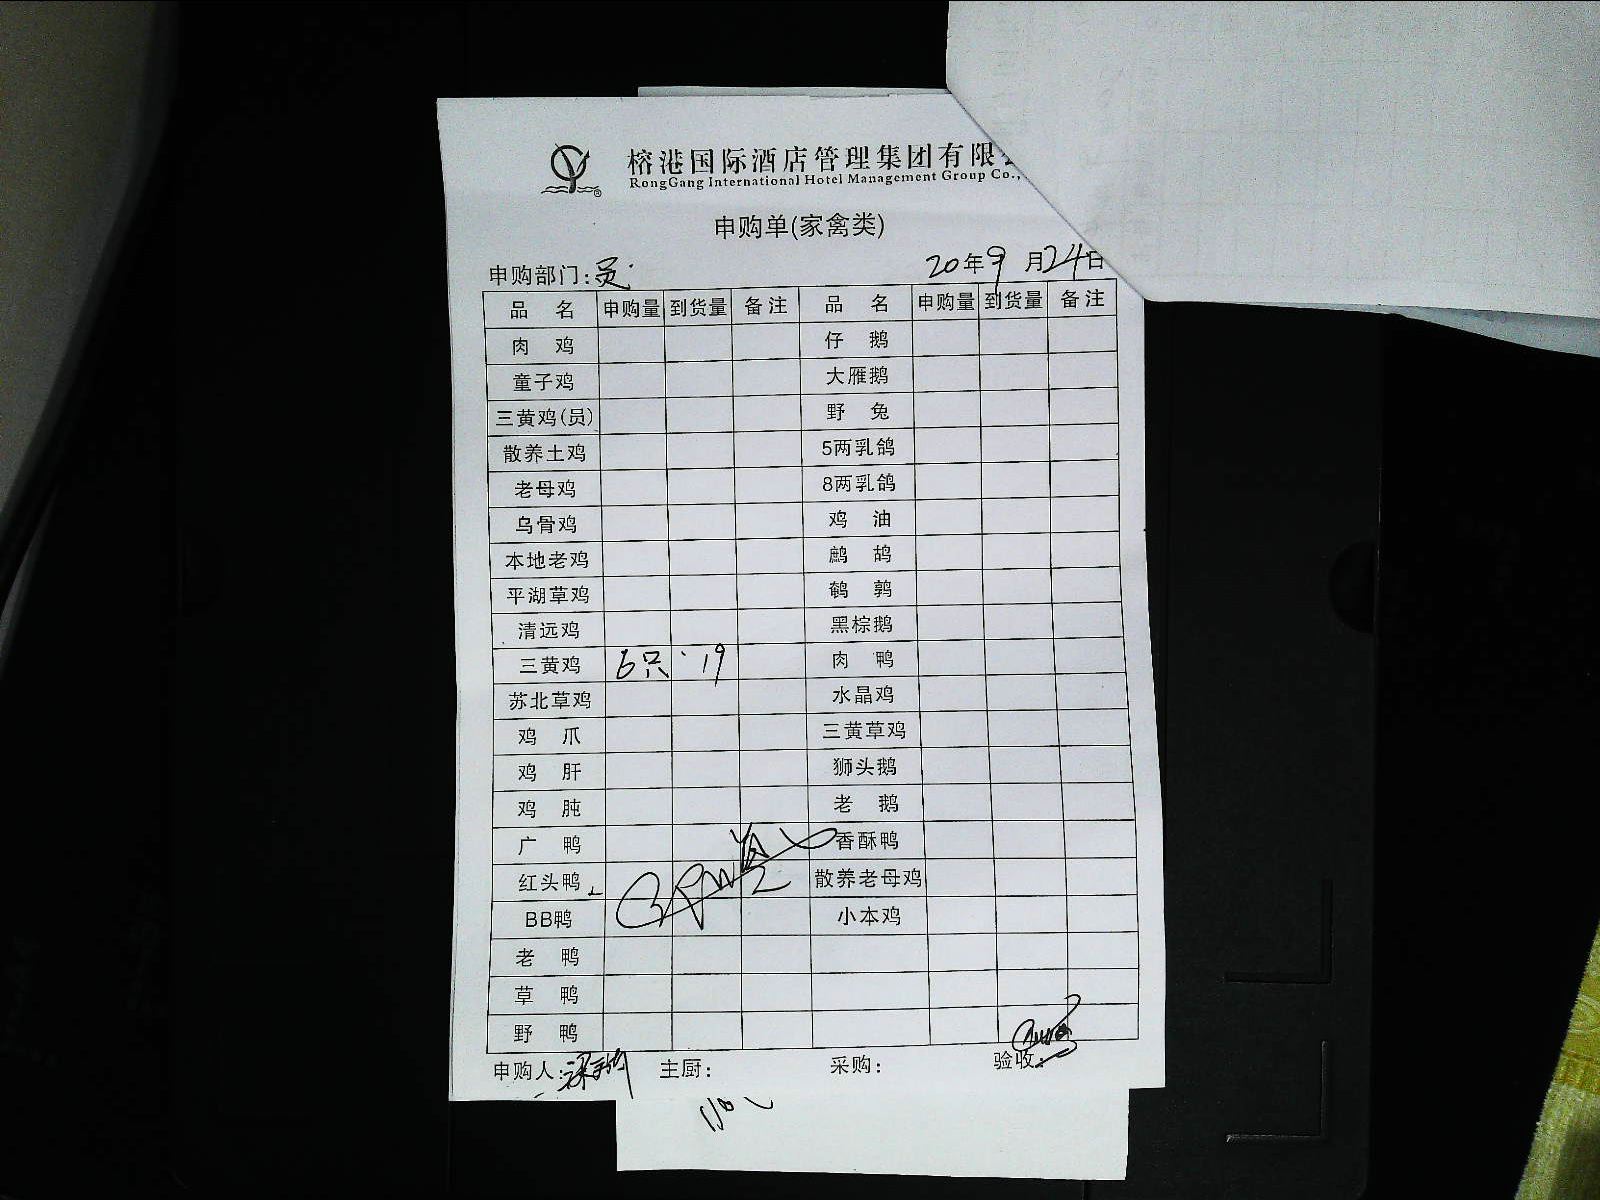 榕港国际酒店管理集团有限
RongGang International Hotel Management Group Co.,
申购单(家禽类)
申购部门:员 20年9月24日
品名 申购量 到货量 备注 品名 申购量 到货量 备注
肉鸡 仔鹅
童子鸡 大雁鹅
三黄鸡(员) 野兔
散养土鸡 5两乳鸽
老母鸡 8两乳鸽
乌骨鸡 鸡油
本地老鸡 鹧鸪
平湖草鸡 鹌鹑
清远鸡 黑棕鹅
三黄鸡 6只 19 肉鸭
苏北草鸡 水晶鸡
鸡爪 三黄草鸡
鸡肝 狮头鹅
鸡肫 老鹅
广鸭 香酥鸭
红头鸭 散养老母鸡
BB鸭 小本鸡
老鸭
草鸭
野鸭
申购人: 主厨: 采购: 验收: